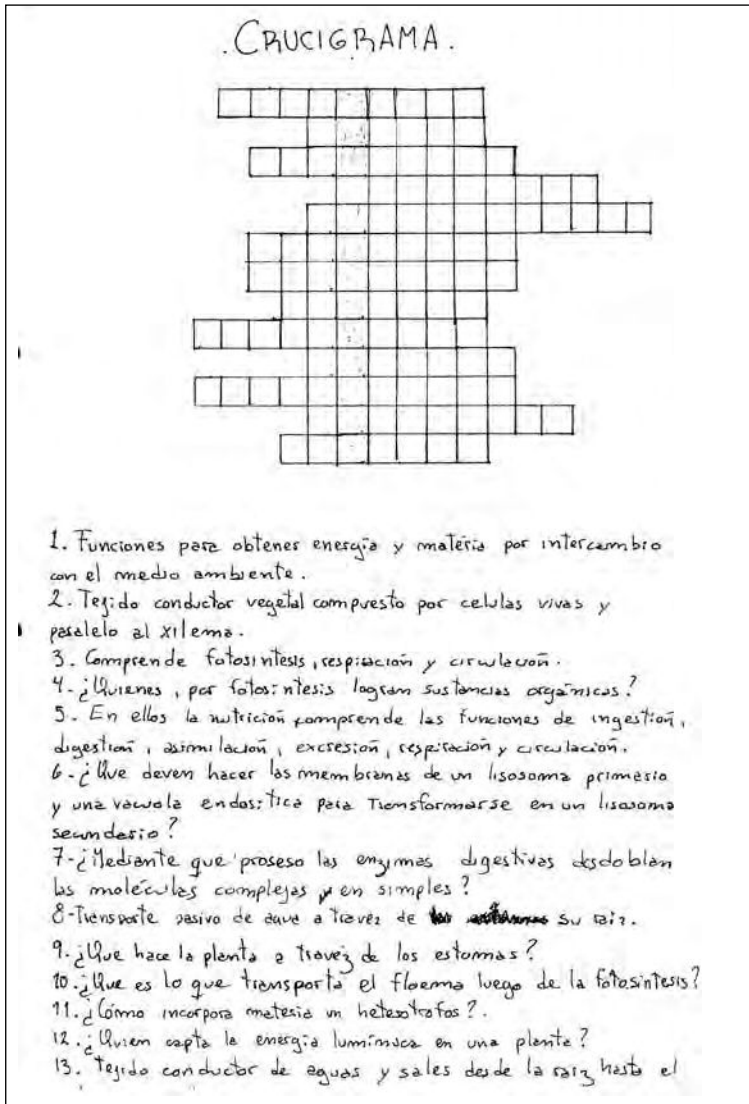 .CRUCIGRAMA.
1. Funciones para obtener energía y materia por intercambio
con el medio ambiente.
2. Tejido conductor vegetal compuesto por celulas vivas y
paralelo al xilema.
3. Comprende fotosintesis, respiración y circulación.
4-¿Quienes, por fotosintesis logran sustancias orgánicas?
5. En ellos la nutrición comprende las funciones de ingestión,
digestión, asimilación, excresión, respiración y circulación.
6-¿Que deven hacer las membranas de un lisosoma primario
y una vacuola endositica para transformarse en un lisosoma
secundario?
7-¿Mediante que proseso las enzimas digestivas desdoblan
las moléculas complejas en simples?
8-Transporte pasivo de agua a travez de su raiz.
9.¿Que hace la planta a travez de los estomas?
10.¿Que es lo que transporta el floema luego de la fotosintesis?
11.¿Cómo incorpora materia un heterotrofos?.
12.¿Quien capta la energía lumínica en una planta?
13. Tejido conductor de aguas y sales desde la raiz hasta el